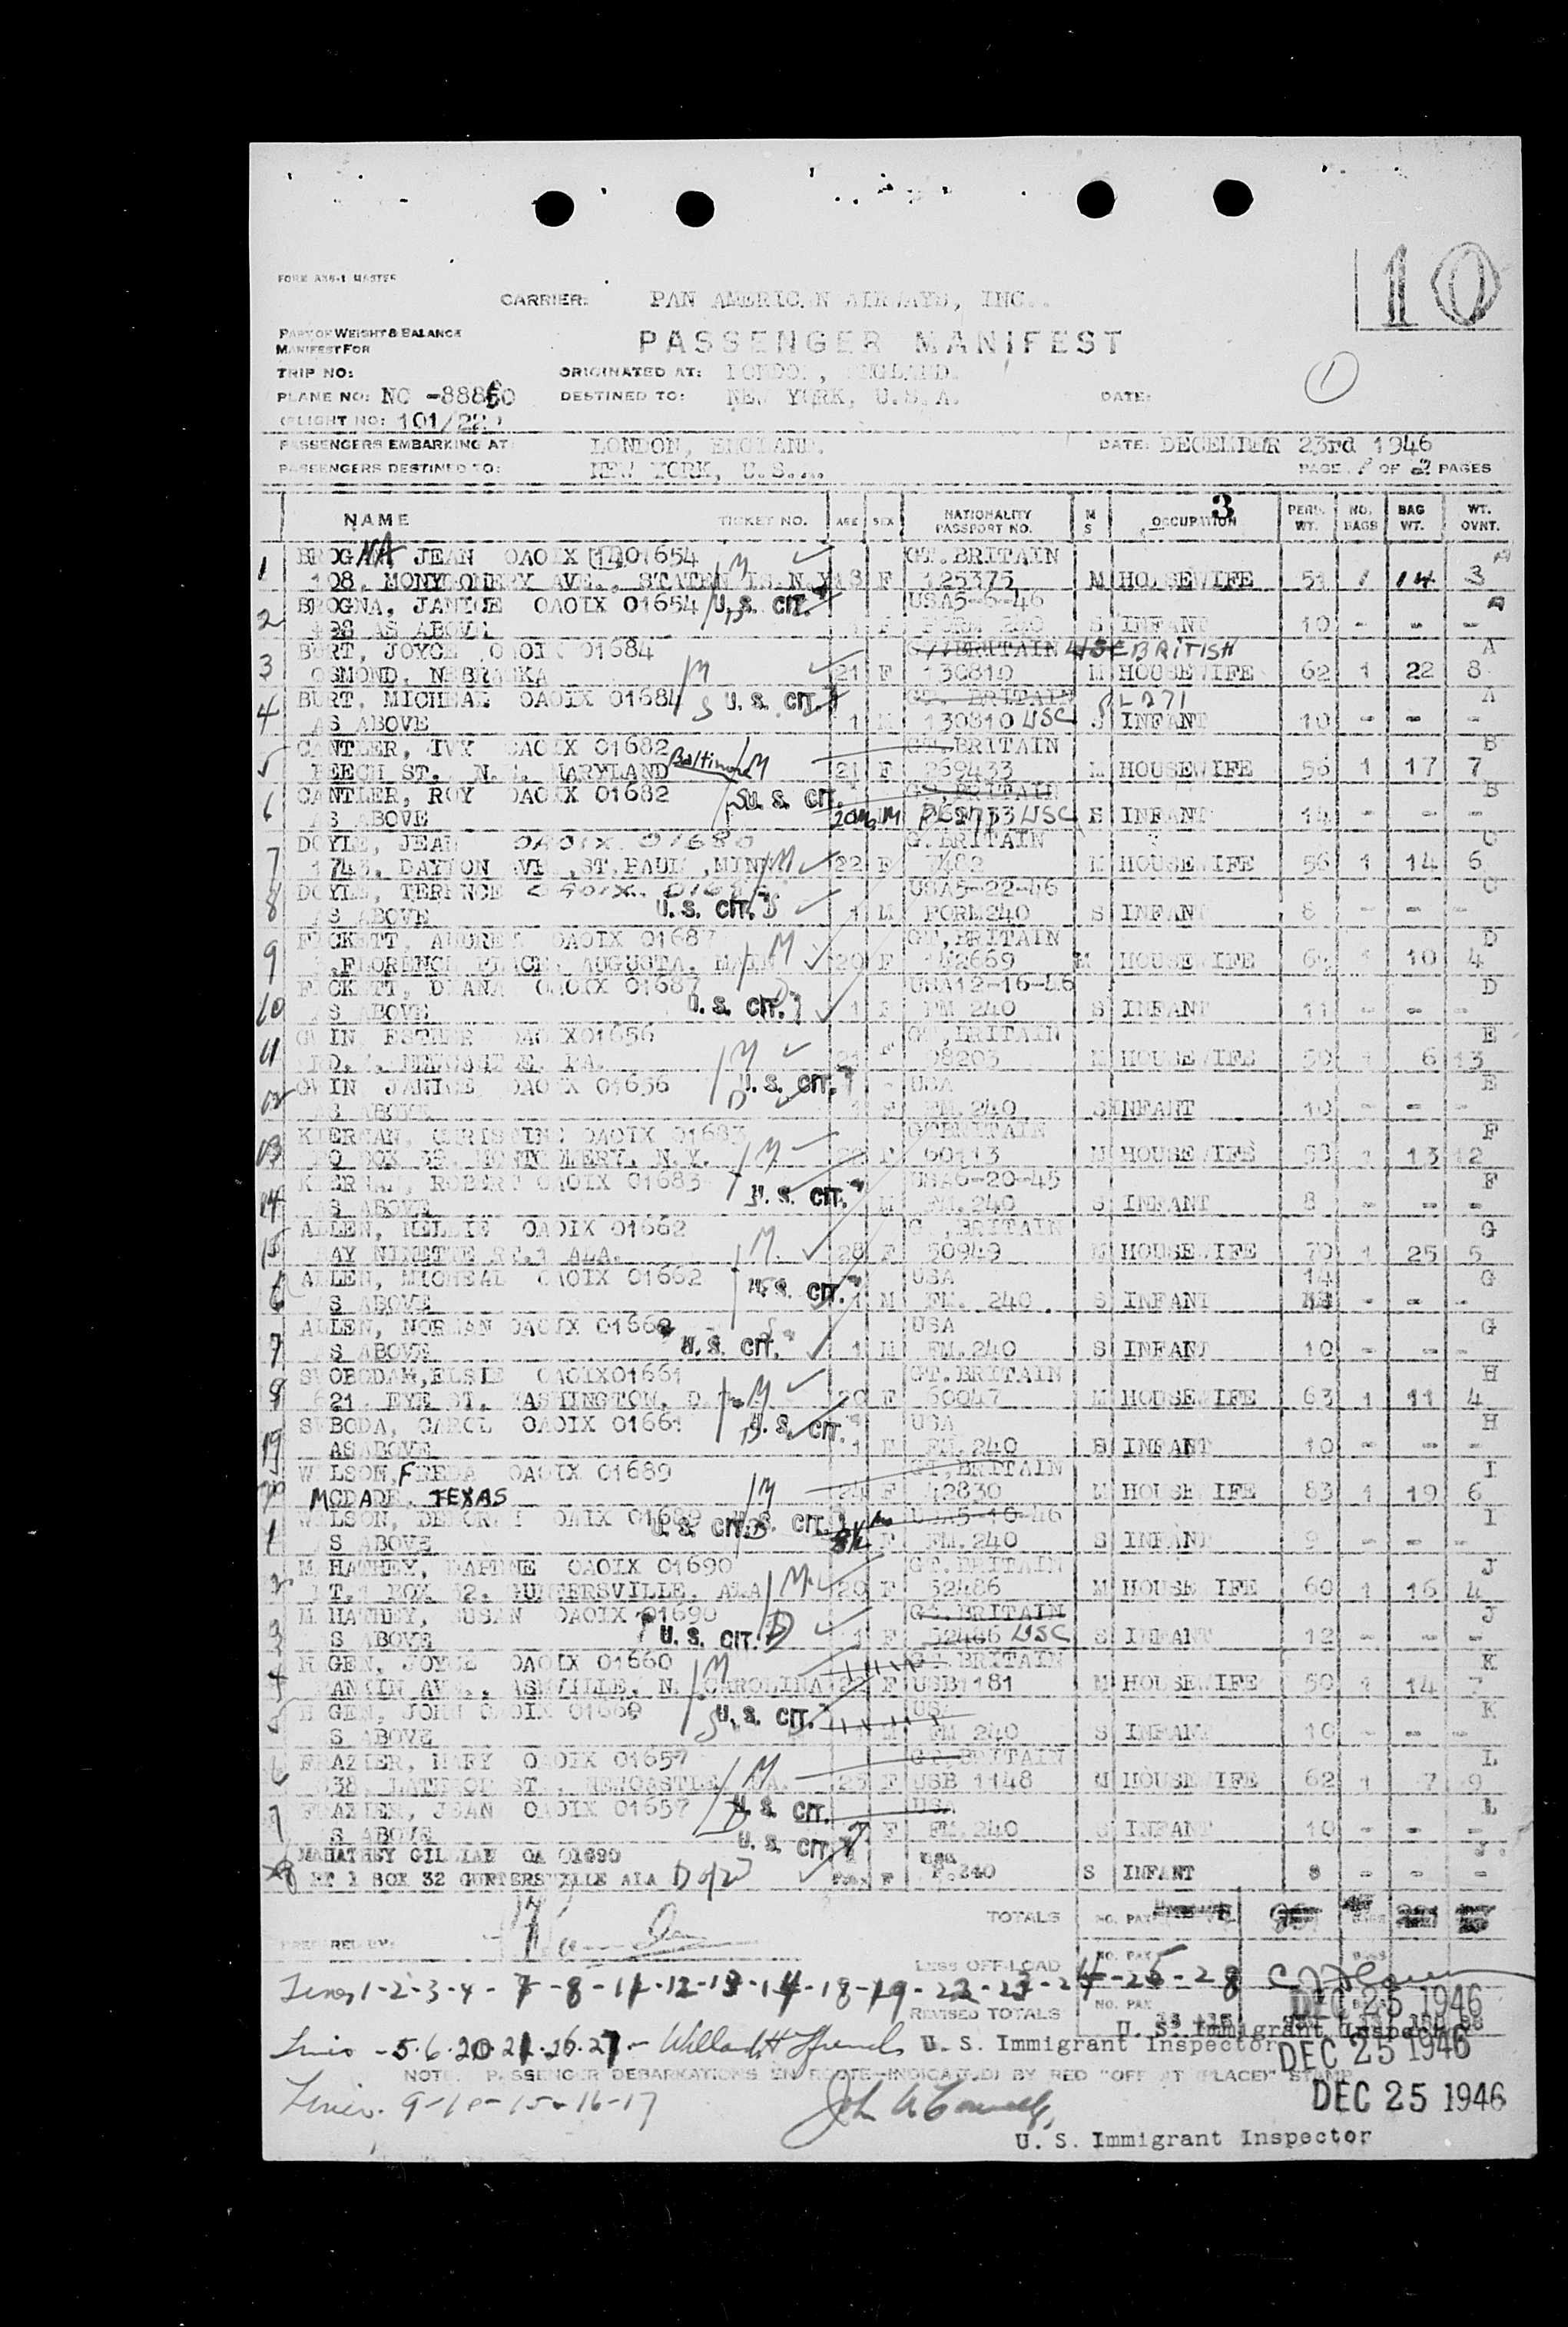 10
FORM
CARRIER: PAN AMERICAN AIRWAYS, INC.
PART OF WEIGHT & BALANCE
MANIFEST FOR
PASSENGER MANIFEST
TRIP NO: ORIGINATED AT: LONDON, ENGLAND. 1
PLANE NO: NC -88860 DESTINED TO: NEW YORK, U.S.A. DATE:
FLIGHT NO: 101/22
PASSENGERS EMBARKING AT: LONDON, ENGLAND. DATE: DECEMBER 23rd 1946
PASSENGERS DESTINED TO: NEW YORK, U.S.A. PAGE 1 OF 2 PAGES
3
NAME TICKET NO. AGE SEX NATIONALITY PASSPORT NO. M S OCCUPATION PERS. WT. NO. BAGS BAG WT. WT. OVNT.
1 BROGNA JEAN OAOIX 01654 M GT.BRITAIN A
108, MONTGOMERY AVE., STATEN IS.N.Y. 18 F 125375 M HOUSEWIFE 51 1 14 3
2 BROGNA, JANICE OAOIX 01654 U.S. CIT. USA5-6-46 A
AS ABOVE F FORM 240 S INFANT 10 - - -
3 BURT, JOYCE OAOIX 01684 GT.BRITAIN USC BRITISH A
OSMOND, NEBRASKA M 21 F 130810 M HOUSEWIFE 62 1 22 8
4 BURT, MICHEAL OAOIX 01684 S U.S. CIT. GT. BRITAIN PL 271 A
AS ABOVE 1 M 130810 USC S INFANT 10 - - -
5 CANTLER, IVY OAOIX 01682 GT.BRITAIN B
BEECH ST. MARYLAND Baltimore M 21 F 269433 M HOUSEWIFE 56 1 17 7
6 CANTLER, ROY OAOIX 01682 S U.S. CIT. GT.BRITAIN B
AS ABOVE 20Mo M USC S INFANT 14 - - -
7 DOYLE, JEAN OAOIX 01680 G.BRITAIN C
1743, DAYTON AVE ,ST.PAUL ,MINN M 22 F 7482 M HOUSEWIFE 56 1 14 6
8 DOYLE, TERENCE OAOIX USA5-22-46 C
AS ABOVE U.S. CIT. S 1 M FORM240 S INFANT 8 - - -
9 FICKETT, AUDREY OAOIX 01687 GT,BRITAIN D
FLORENCE PLACE, AUGUSTA, MAINE M 20 F 142669 M HOUSEWIFE 1 10 4
10 FICKETT, DIANA OAOIX 01687 USA12-16-46 D
AS ABOVE U.S. CIT. 1 F FM 240 S INFANT 11 - - -
11 GWIN ESTHER OAOIX01656 GT,BRITAIN E
PA. M 21 F 98203 M HOUSEWIFE 50 1 6 13
12 GWIN JANICE OAOIX 01656 D U.S. CIT. USA E
AS ABOVE 1 F FM.240 S INFANT 10 - - -
13 KIERNAN, CHRISTINE OAOIX 01683 GT BRITAIN F
PO BOX 39, MONTGOMERY, N.Y. M F 60113 M HOUSEWIFE 58 1 13 12
14 KIERNAN, ROBERT OAOIX 01683 U.S. CIT. USA6-20-45 F
AS ABOVE M FM.240 S INFANT 8 - - -
15 ALLEN, NELLIE OAOIX 01662 GT,BRITAIN G
RT.1 ALA. M 28 F 50949 M HOUSEWIFE 70 1 25 5
6 ALLEN, MICHEAL OAOIX 01662 U.S. CIT. USA 14 G
AS ABOVE 1 M FM. 240 S INFANT - - -
7 ALLEN, NORMAN OAOIX 01662 USA G
AS ABOVE U.S. CIT. 1 M FM.240 S INFANT 10 - - -
8 SVOBODAM,ELSIE OAOIX01661 GT.BRITAIN H
621 EYE ST. WASHINGTON, D. M 20 F 60047 M HOUSEWIFE 63 1 11 4
19 SVBODA, CAROL OAOIX 01661 D U.S. CIT. USA H
AS ABOVE 1 F FM.240 S INFANT 10 - - -
20 WILSON,FREDA OAOIX 01689 GT,BRITAIN I
MCDADE, TEXAS M 24 F 42830 M HOUSEWIFE 83 1 19 6
1 WILSON, DEBORAH OAIX 01689 U.S. CIT. D U.S. CIT. USA5-10-46 I
AS ABOVE F FM.240 S INFANT 9 - - -
2 MAHATHEY, DAPHNE OAOIX 01690 GT.BRITAIN J
RT.1 BOX 32, GUNTERSVILLE, ALA M 20 F 52486 M HOUSEWIFE 60 1 16 4
3 MAHATHEY, SUSAN OAOIX 01690 GT.BRITAIN J
AS ABOVE U.S. CIT. D 1 F 52486 USC S INFANT 12 - - -
4 HAGEN, JOYCE OAOIX 01660 M GT.BRITAIN K
RANKIN AVE., ASHVILLE, N. CAROLINA 22 F USB1181 M HOUSEWIFE 50 1 14 7
5 HAGEN, JOHN OAOIX 01660 S U.S. CIT. USA K
AS ABOVE M FM 240 S INFANT 10 - - -
6 FRAZIER, MARY OAOIX 01657 GT,BRITAIN L
ST., NEWCASTLE PA. M 23 F USB 1148 M HOUSEWIFE 62 1 7 9
7 FRAZIER, JEAN OAOIX 01657 D U.S. CIT. USA L
AS ABOVE F FM.240 S INFANT 10 - - -
28 MAHATHEY GILLIAN OA 01690 U.S. CIT. USA J.
RT 1 BOX 32 GUNTERSVILLE ALA D of 22 F F.240 S INFANT 8 - - -
TOTALS NO. PAX
PREPARED BY:
LESS OFF-LOAD NO. PAX BAGS
Lines 1-2-3-4-7-8-11-12-13-14-18-19-22-23-24-25-28
DEC 25 1946
REVISED TOTALS NO. PAX
U. S. Immigrant Inspector
Lines -5-6-20-21-26-27- U. S. Immigrant Inspector DEC 25 1946
NOTE: PASSENGER DEBARKATIONS EN ROUTE-INDICATED BY RED "OFF AT (PLACE)" STAMP
Lines 9-10-15-16-17 DEC 25 1946
U. S. Immigrant Inspector